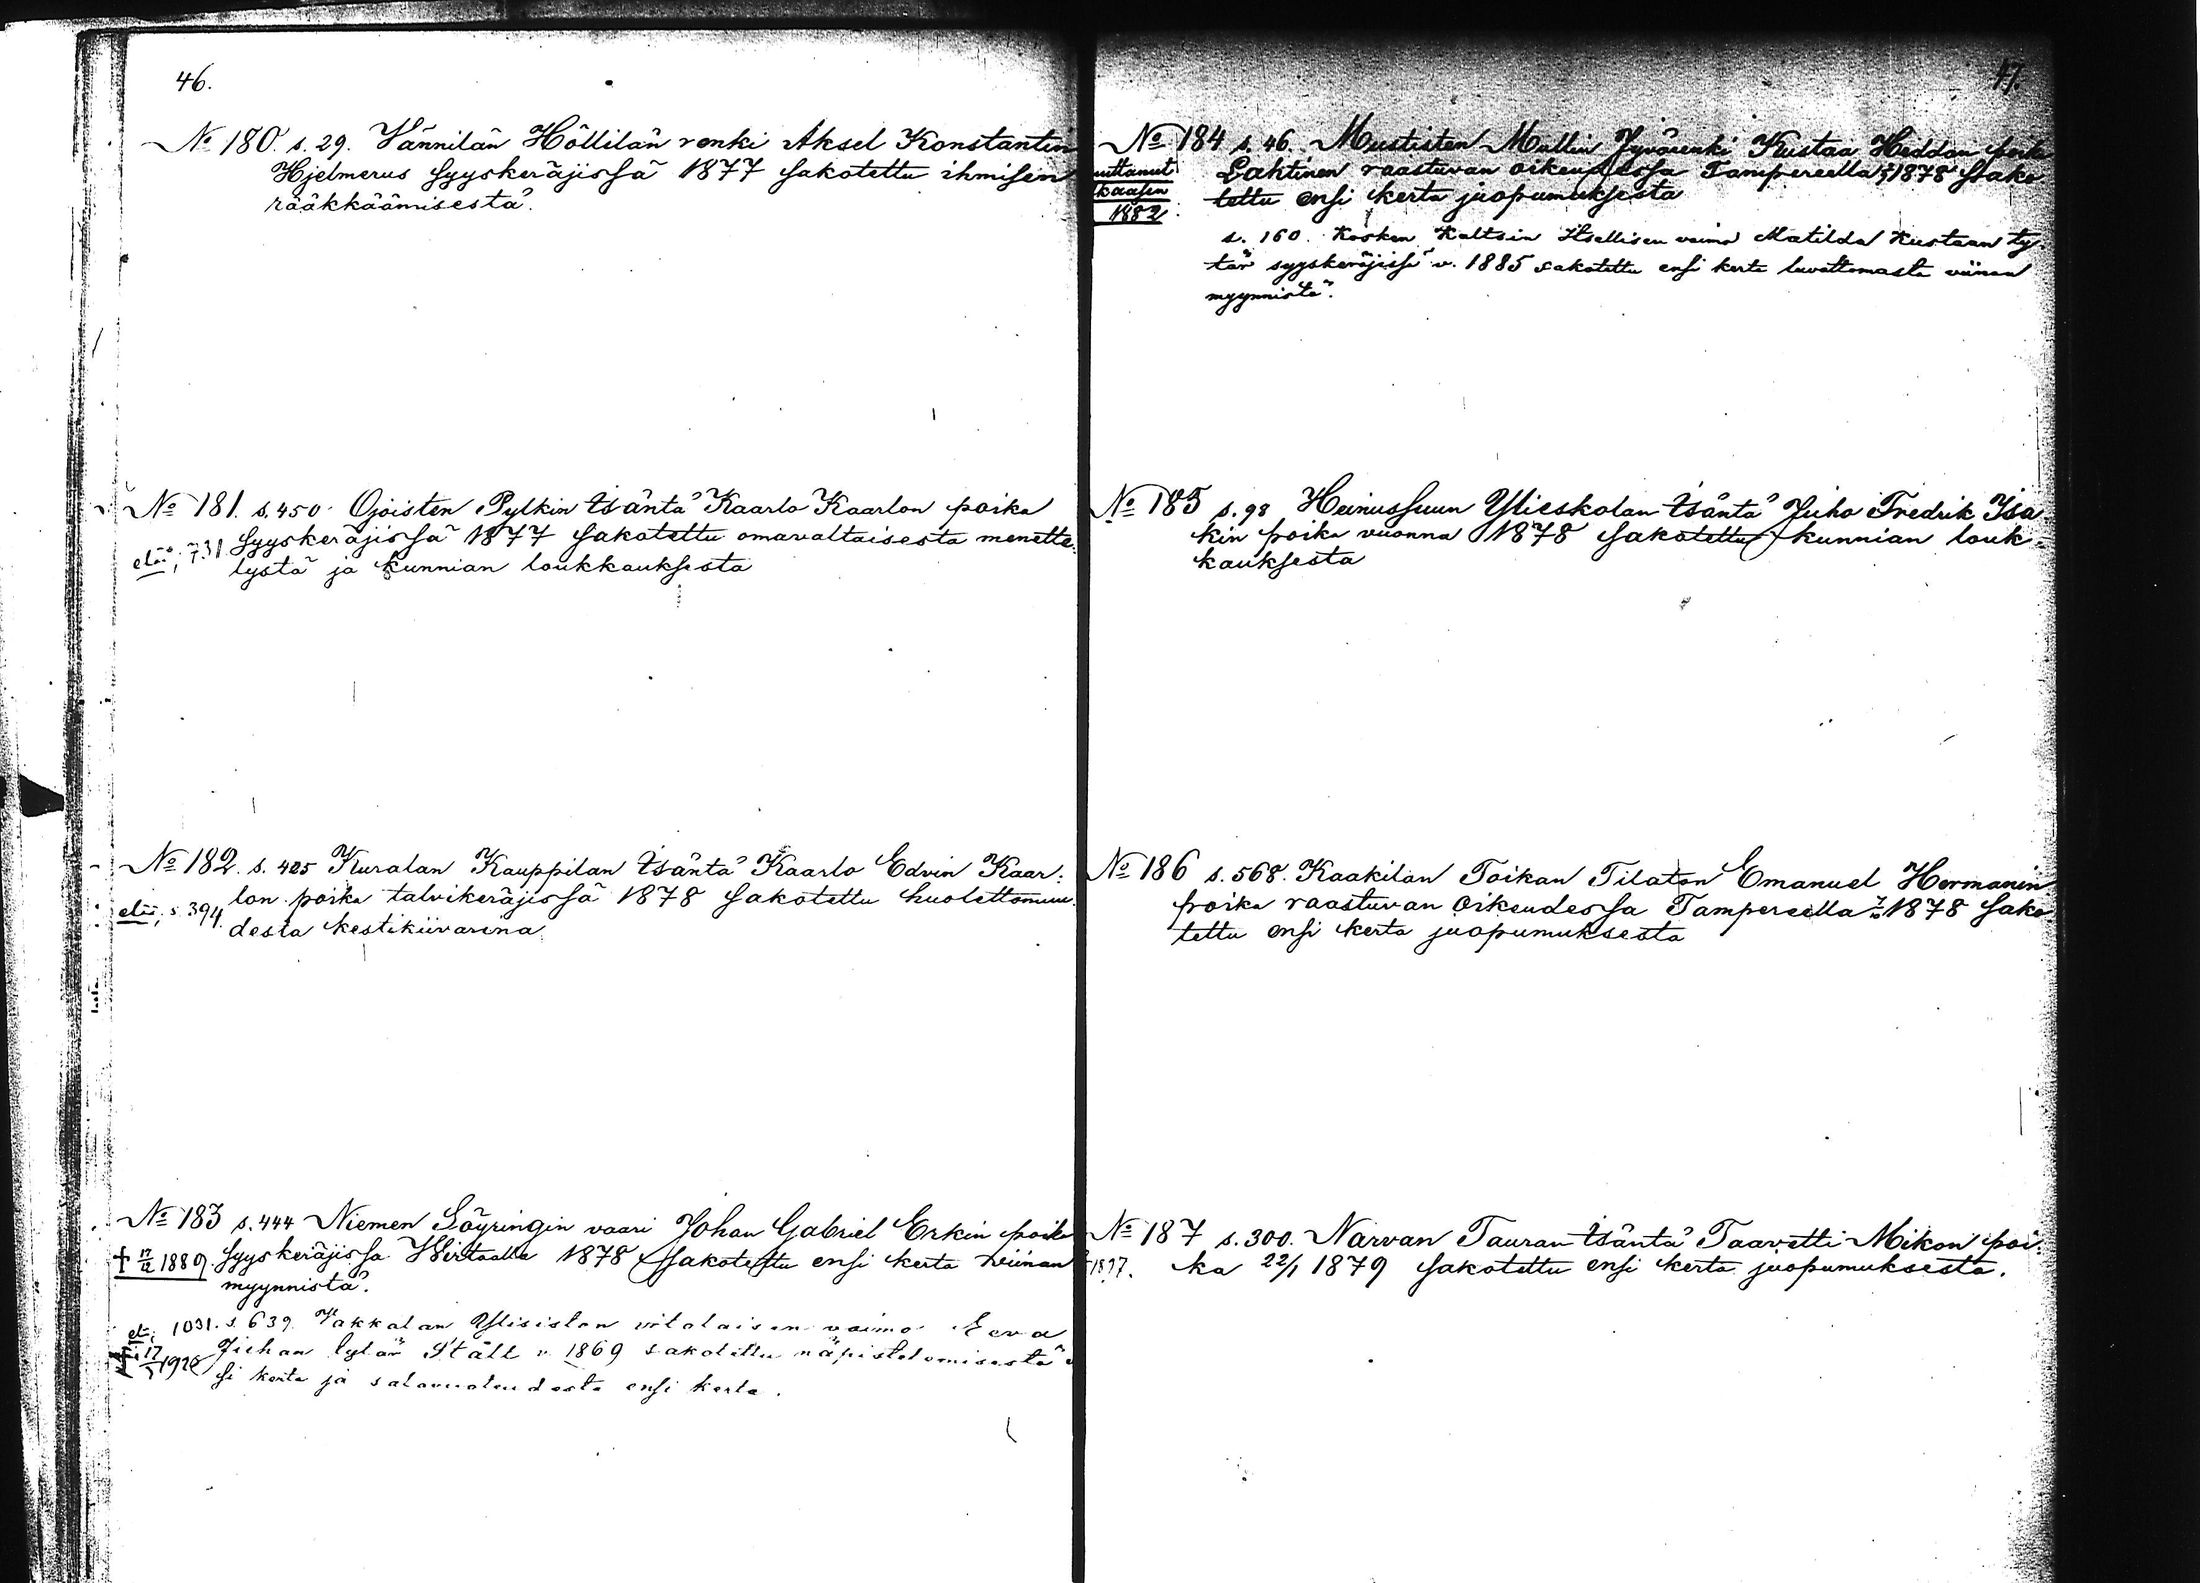 46.
No 180. s. 29. Männilän Höllilän renki Aksel Konstantin
Hjelmerus syyskeräjissä 1877 sakotettu ihmisen
rääkkäämisestä.
No 181. s. 450. Ojoisten Pylkin Isäntä Kaarlo Kaarlon poika
elää; 731 syyskeräjissä 1877 sakotettu omavaltaisesta menette-
lystä ja kunnian loukkauksesta
No 182. s. 425 Kuralan Kauppilan Isäntä Kaarlo Edvin Kaar-
lon poika talvikeräjissä 1878 sakotettu huolettomuu-
elää; s. 394. desta kestikiivarina
No 183 s. 444 Niemen Söyringin vaari Johan Gabriel Erkin poika
† 17/12 1889 syyskeräjissä Wirtaalla 1878 sakotettu ensi kerta viinan
myynnistä.
el; 1031. s. 639. Vakkalan Ylisistan vaimo Eeva
1928 Juhan tytär Ståll v. 1869 sakotettu näpistelemisestä
si kerta ja salavuoteudesta ensi kerta.
47.
No 184 s. 46. Mustisten Mullin Jyvärenki Kustaa Heddan poika
muttanut Lahtinen raastuvan oikeudessa Tampereella 1878 sako-
1882. tettu ensi kerta juopumuksesta
s. 160. Kosken Kaltsin Itsellisen vaimo Matilda Kustaan ty-
tär syyskeräjissä v. 1885 sakotettu ensi kerta luvattomasta viinan
myynnistä.
No 185 s. 98 Heinussuun Ylieskolan Isäntä Juho Fredrik Isa-
kin poika vuonna 1878 sakotettu kunnian louk-
kauksesta
No 186 s. 568. Kaakilan Toikan Tilaton Emanuel Hermanin
poika raastuvan oikeudessa Tampereella 1878 sako
tettu ensi kerta juopumuksesta
No 187 s. 300. Narvan Tauran Isäntä Taavetti Mikon poi-
1897. ka 22/1 1879 sakotettu ensi kerta juopumuksesta.